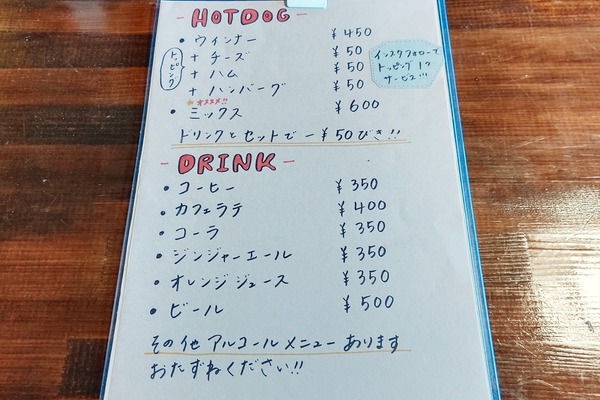 HOTDOG
・ウィンナー ¥450
トッピング
+ チーズ ¥50
+ ハム ¥50
+ ハンバーグ ¥50
オススメ!!
・ミックス ¥600
インスタフォローで
トッピング1ケ
サービス!!!
ドリンクとセットで-¥50びき!!
DRINK
・コーヒー ¥350
・カフェラテ ¥400
・コーラ ¥350
・ジンジャーエール ¥350
・オレンジジュース ¥350
・ビール ¥500
その他アルコールメニューあります
おたずねください!!